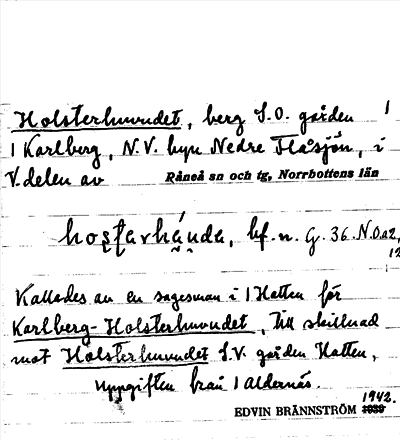 Holsterhuvudet, berg S.O. gården 1
1 Karlberg, N.V. byn Nedre Flåsjön, i
V. delen av Råneå sn och tg, Norrbottens län
hostarhúvuda, bf. n. G. 36. N.O.a2,
12
Kallades av en sagesman i 1 Hatten för
Karlberg-Holsterhuvudet, till skillnad
mot Holsterhuvudet S.V. gården Hatten,
uppgiften från 1 Aldernäs.
1942.
EDVIN BRÄNNSTRÖM 1939